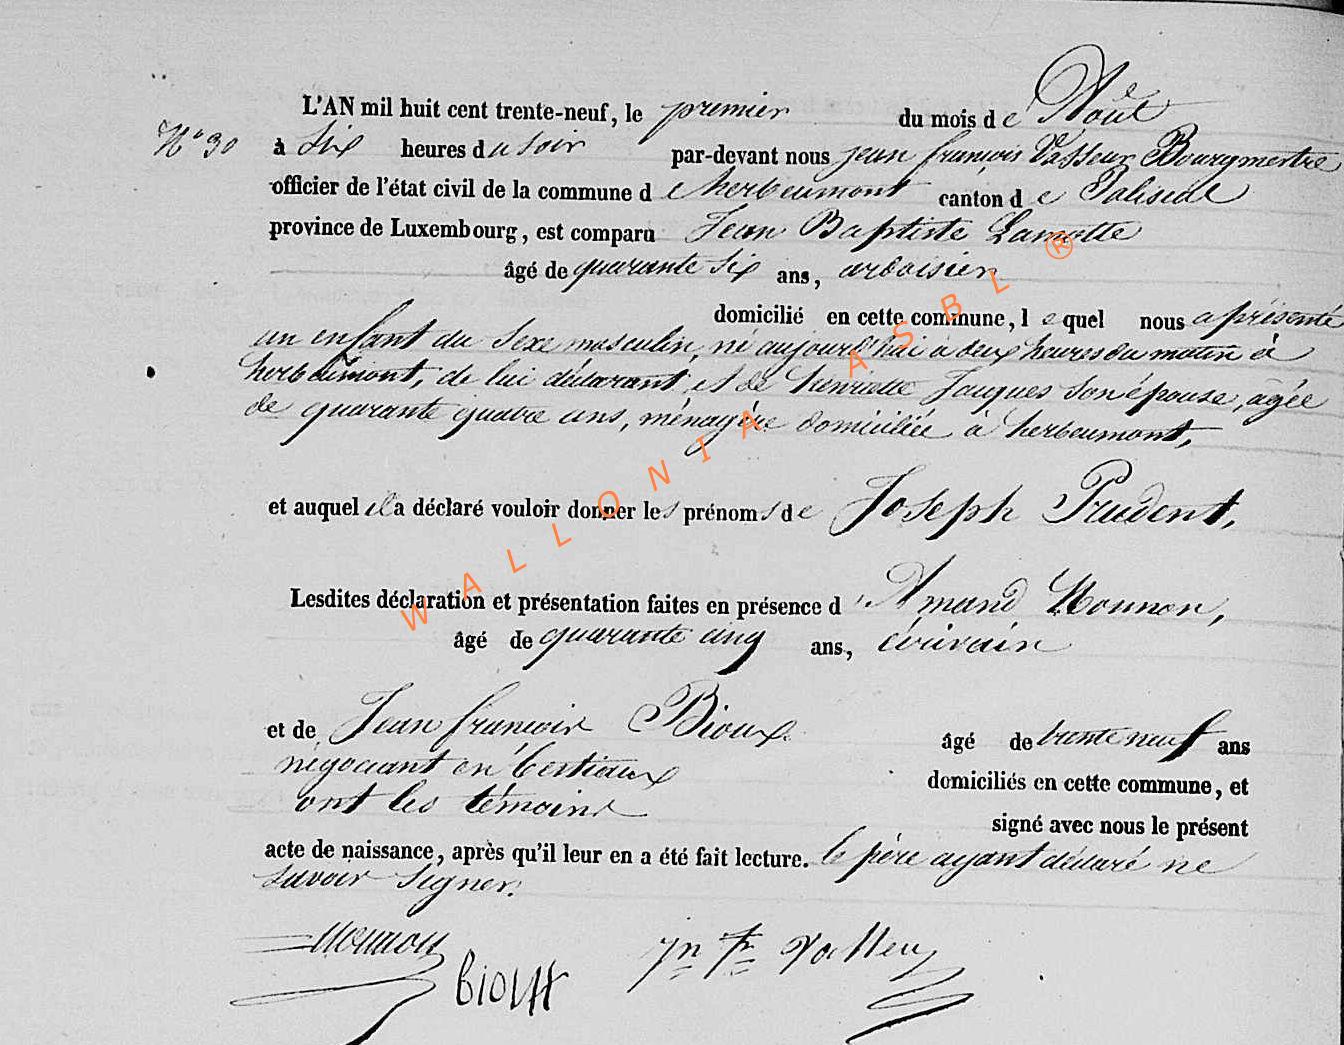 L'AN mil huit cent trente-neuf, le premier du mois de Août
N° 30 à Six heures du soir par-devant nous jean françois Vasseur Bourgmestre
officier de l'état civil de la commune de herbeumont canton de Paliseul
province de Luxembourg, est comparu Jean Baptiste Lamotte
âgé de quarante six ans, ardoisier
domicilié en cette commune, lequel nous a présenté
un enfant du Sexe masculin, né aujourd'hui à deux heures du matin à
herbeumont, de lui déclarant, et de henriette Jacques Son épouse, agée
de quarante quatre ans, ménagère domiciliée à herbeumont,
et auquel il a déclaré vouloir donner les prénoms de Joseph Prudent,
Lesdites déclaration et présentation faites en présence d'Amand Monnon,
âgé de quarante cinq ans, écrivain
et de Jean françois Bioux âgé de trente neuf ans
négociant en bestiaux domiciliés en cette commune, et
ont les témoins signé avec nous le présent
acte de naissance, après qu'il leur en a été fait lecture. le père ayant déclaré ne
savoir signer.
Monnon
Bioux
Jn Fr Vasseur
WALLONIA ASBL ®